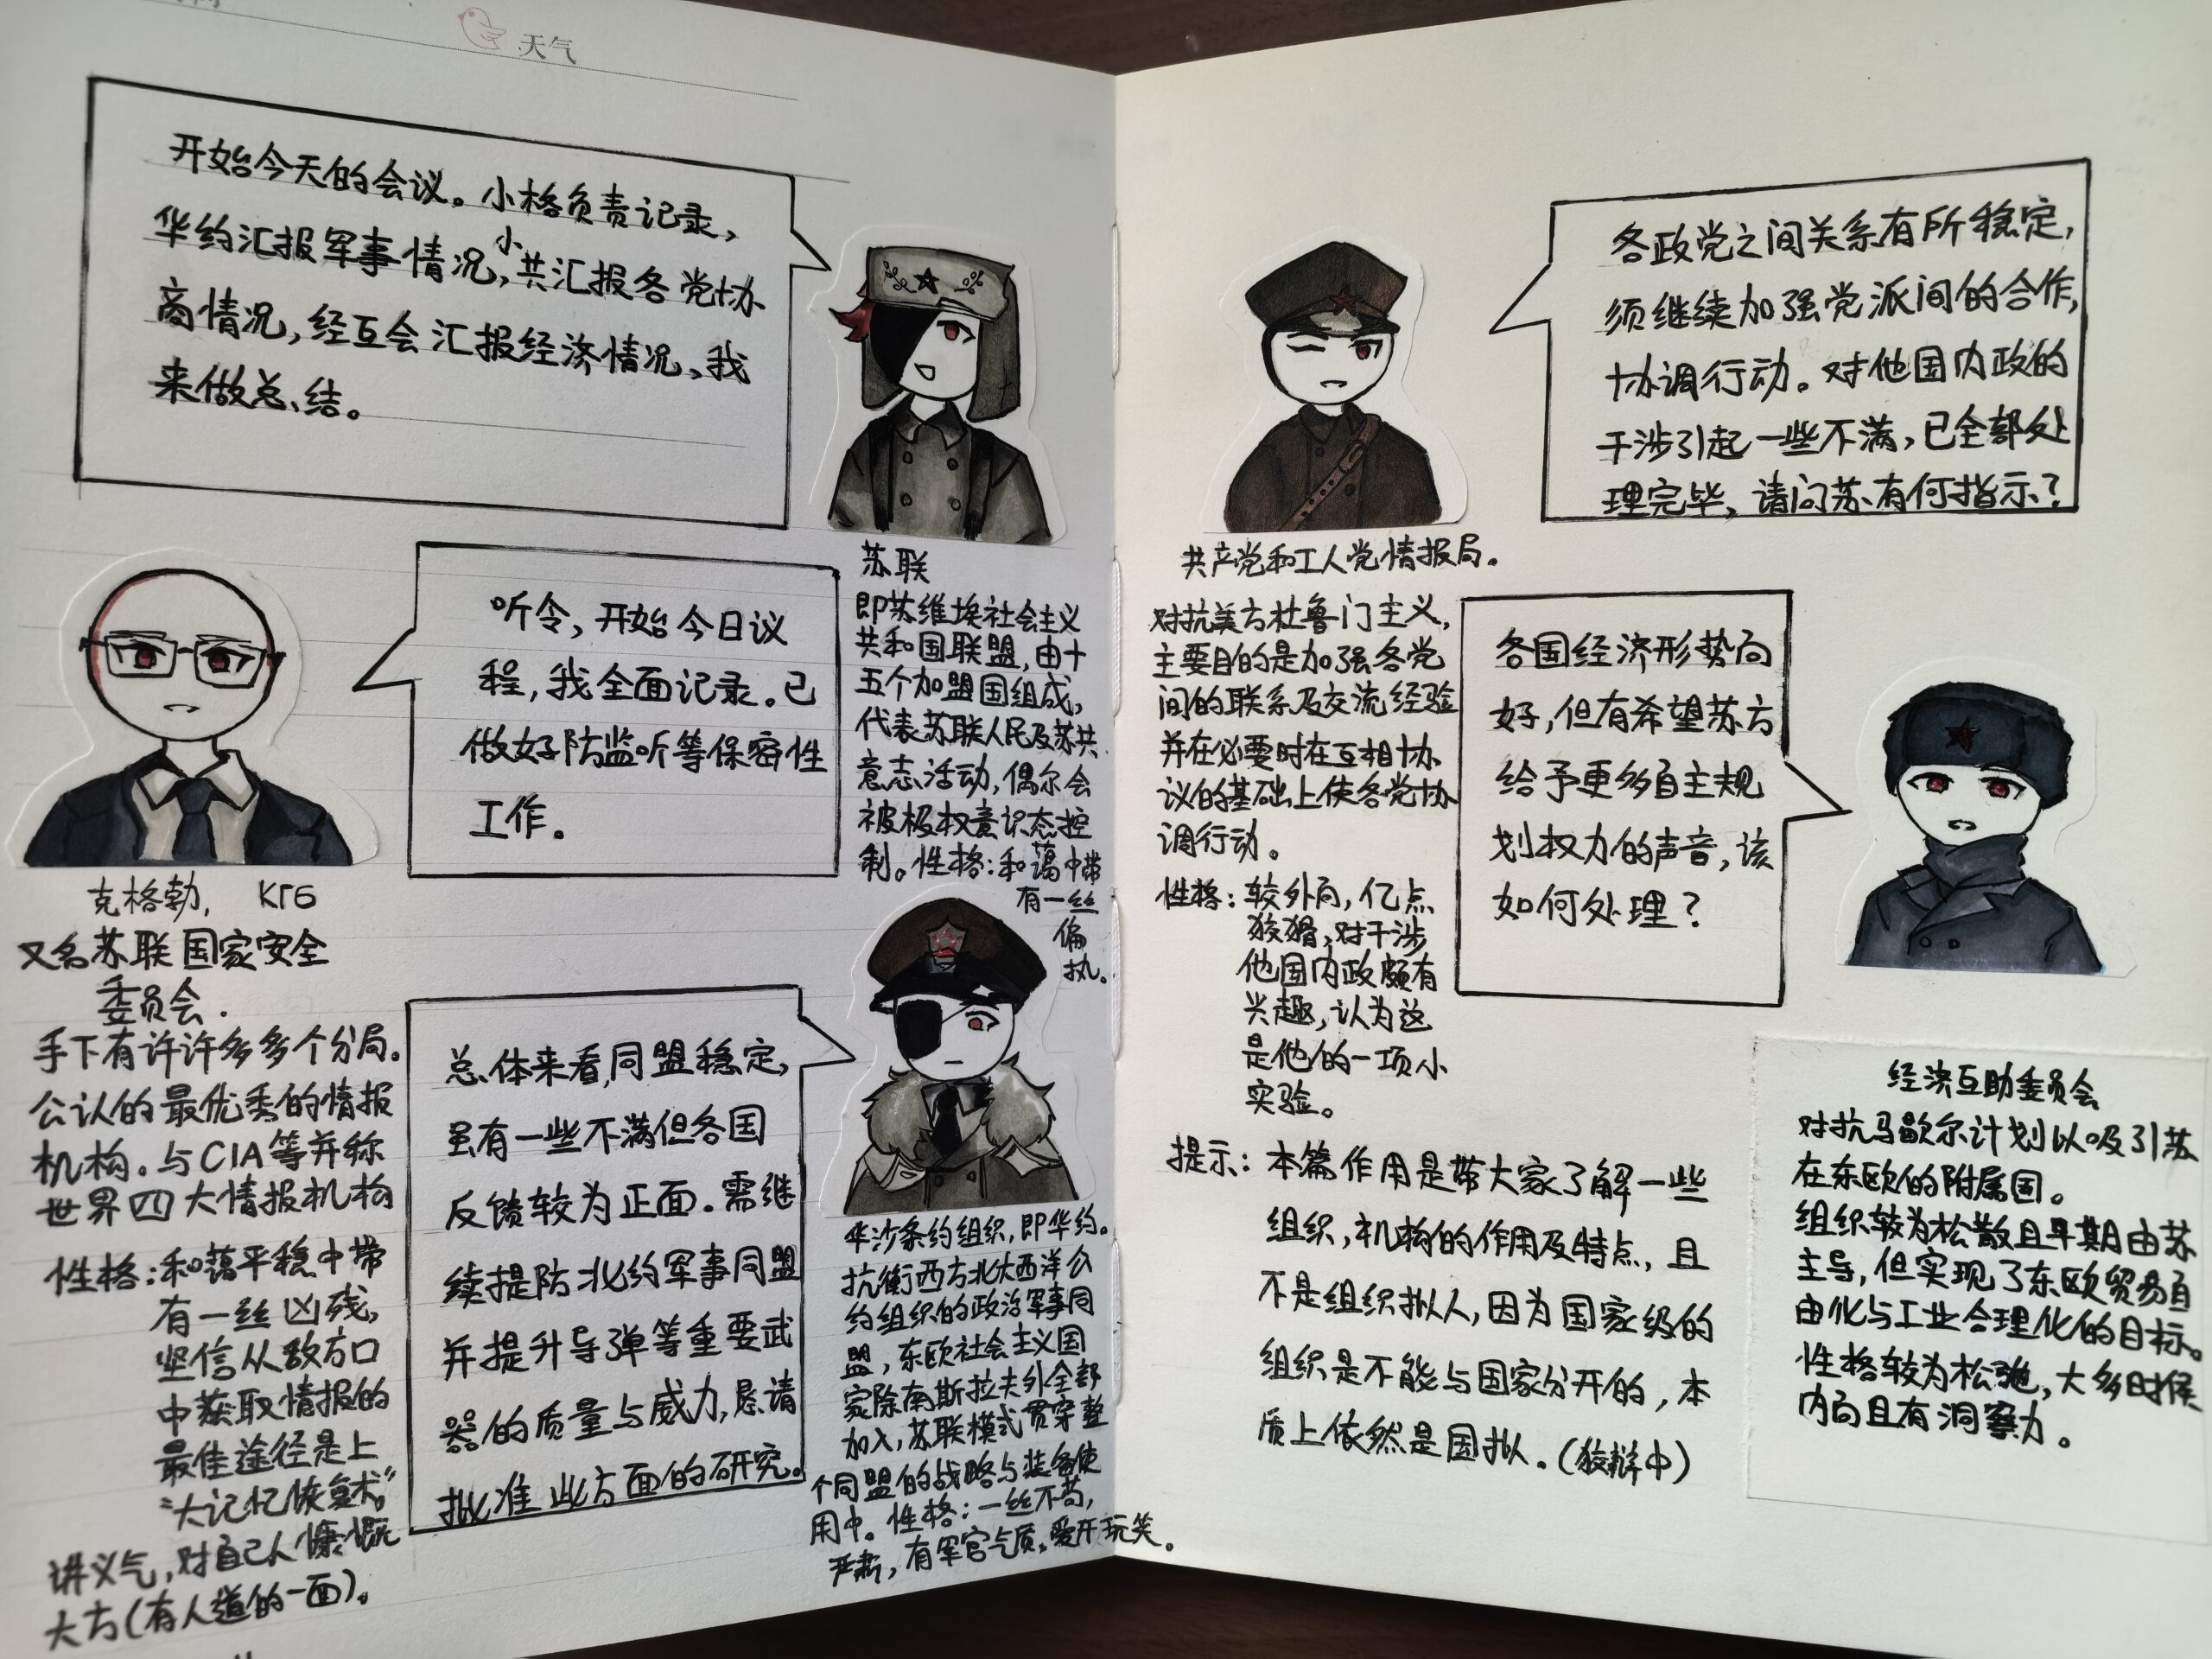 天气
开始今天的会议。小格负责记录,
华约汇报军事情况,小共汇报各党协
商情况,经互会汇报经济情况,我
来做总结。
苏联
即苏维埃社会主义
共和国联盟,由十
五个加盟国组成,
代表苏联人民及苏共
意志活动,偶尔会
被极权意识态控
制。性格:和蔼中带
有一丝
偏
执。
听令,开始今日议
程,我全面记录。已
做好防监听等保密性
工作。
克格勃, КГБ
又名苏联国家安全
委员会.
手下有许许多多个分局。
公认的最优秀的情报
机构。与CIA等并称
世界四大情报机构
性格:和蔼平稳中带
有一丝凶残,
坚信从敌方口
中获取情报的
最佳途径是上
“大记忆恢复术”
讲义气,对自己人慷慨
大方(有人道的一面)。
总体来看,同盟稳定,
虽有一些不满但各国
反馈较为正面.需继
续提防北约军事同盟
并提升导弹等重要武
器的质量与威力,恳请
批准此方面的研究。
华沙条约组织,即华约。
抗衡西方北大西洋公
约组织的政治军事同
盟,东欧社会主义国
家除南斯拉夫外全部
加入,苏联模式贯穿整
个同盟的战略与装备使
用中。性格:一丝不苟,
严肃,有军官气质,爱开玩笑。
各政党之间关系有所稳定,
须继续加强党派间的合作,
协调行动。对他国内政的
干涉引起一些不满,已全部处
理完毕,请问苏有何指示?
共产党和工人党情报局。
对抗美方杜鲁门主义,
主要目的是加强各党
间的联系及交流经验
并在必要时在互相协
议的基础上使各党协
调行动。
性格:较外向,亿点
狡猾,对干涉
他国内政颇有
兴趣,认为这
是他的一项小
实验。
各国经济形势向
好,但有希望苏方
给予更多自主规
划权力的声音,该
如何处理?
经济互助委员会
对抗马歇尔计划以吸引苏
在东欧的附属国。
组织较为松散且早期由苏
主导,但实现了东欧贸易自
由化与工业合理化的目标。
性格较为松弛,大多时候
内向且有洞察力。
提示:本篇作用是带大家了解一些
组织,机构的作用及特点,且
不是组织拟人,因为国家级的
组织是不能与国家分开的,本
质上依然是国拟.(狡辩中)